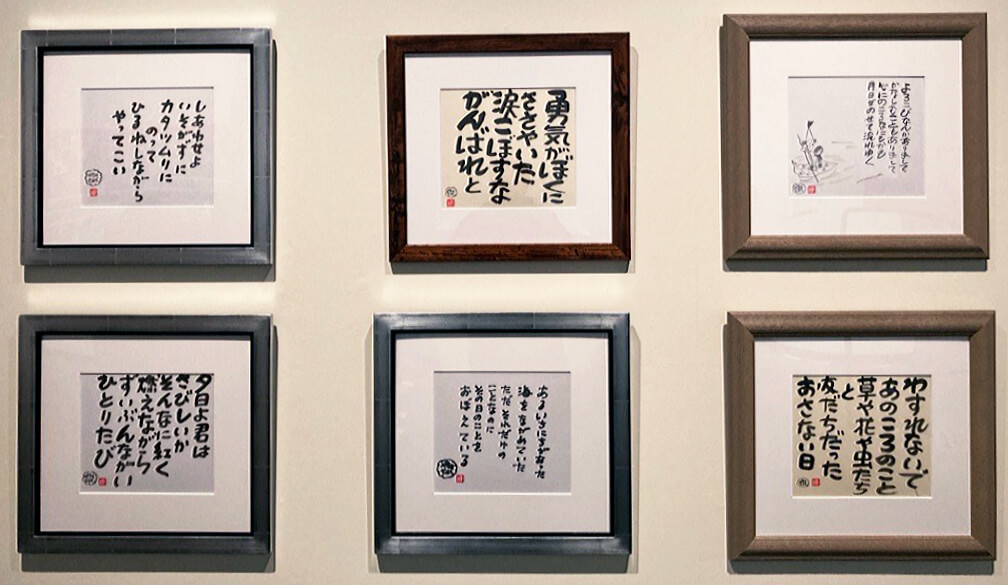 しあわせよ
いそがずに
カタツムリに
のって
ひるねしながら
やってこい
勇気がぼくに
ささやいた
涙こぼすな
がんばれと
ありまして
かなしいこともありまして
月日がのせて流れゆく
夕日よ君は
さびしいか
そんなに紅く
燃えながら
ずいぶんながい
ひとりたび
海をながめていた
ただそれだけの
ことなのに
その日のことを
おぼえている
わすれないで
あのころのこと
草や花や虫たち
と
友だちだった
おさない日